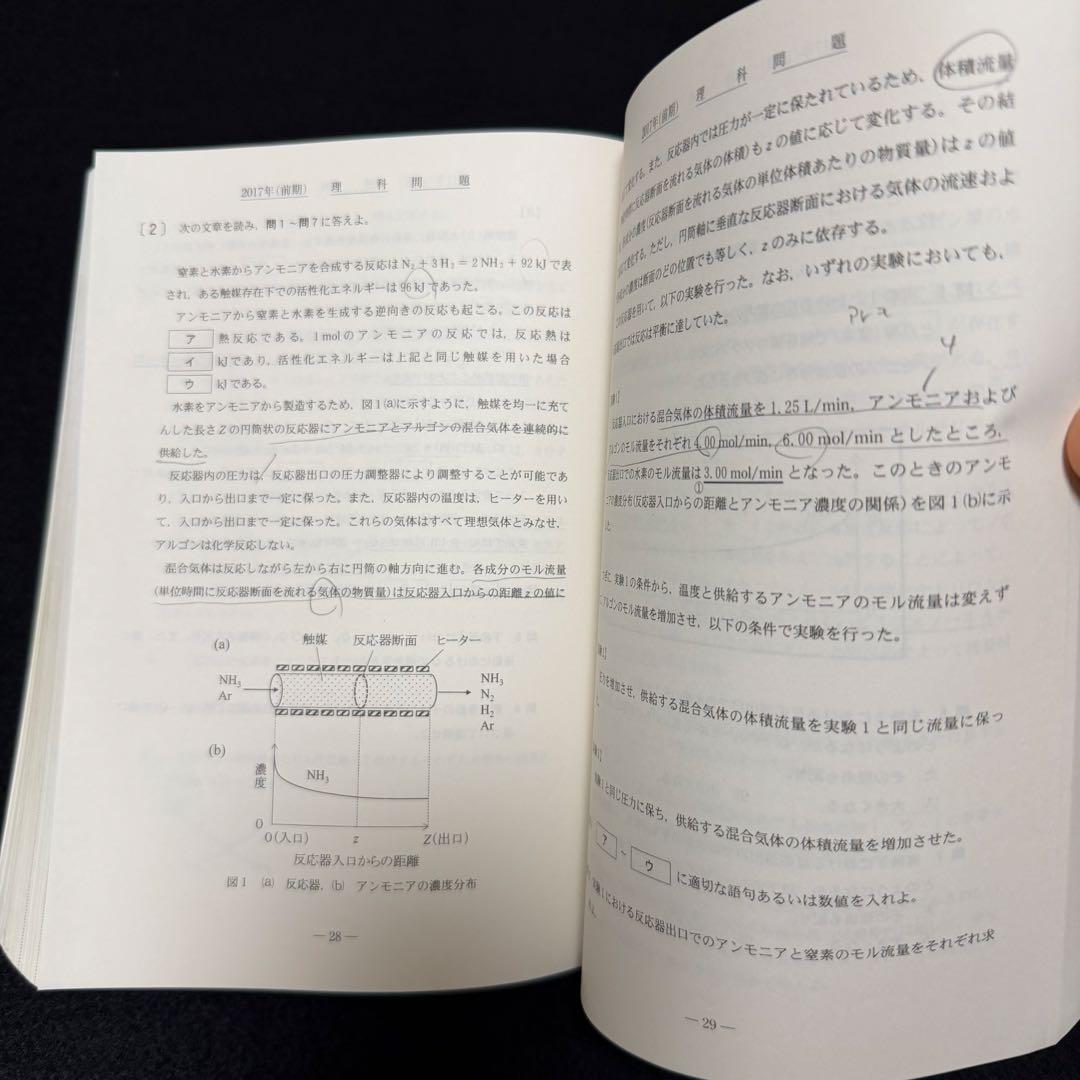 2017年(前期) 理科問題
〔2〕 次の文章を読み，問1～問7に答えよ。
窒素と水素からアンモニアを合成する反応はN₂ + 3H₂ = 2NH₃ + 92kJで表
され，ある触媒存在下での活性化エネルギーは96kJであった。
アンモニアから窒素と水素を生成する逆向きの反応も起こる。この反応は
ア 熱反応である。1molのアンモニアの反応では，反応熱は
イ kJであり，活性化エネルギーは上記と同じ触媒を用いた場合
ウ kJである。
水素をアンモニアから製造するため，図1(a)に示すように，触媒を均一に充て
んした長さZの円筒状の反応器にアンモニアとアルゴンの混合気体を連続的に
供給した。
反応器内の圧力は，反応器出口の圧力調整器により調整することが可能であ
り，入口から出口まで一定に保った。また，反応器内の温度は，ヒーターを用い
て，入口から出口まで一定に保った。これらの気体はすべて理想気体とみなせ，
アルゴンは化学反応しない。
混合気体は反応しながら左から右に円筒の軸方向に進む。各成分のモル流量
(単位時間に反応器断面を流れる気体の物質量)は反応器入口からの距離zの値に
(a) 触媒 反応器断面 ヒーター
NH₃
Ar
NH₃
N₂
H₂
Ar
(b)
濃度
NH₃
0
0(入口) z Z(出口)
反応器入口からの距離
図1 (a) 反応器，(b) アンモニアの濃度分布
— 28 —
2017年(前期) 理科問題
て変化する。また，反応器内では圧力が一定に保たれているため，体積流量
に反応器断面を流れる気体の体積)もzの値に応じて変化する。その結
濃度(反応器断面を流れる気体の単位体積あたりの物質量)はzの値
じて変化する。ただし，円筒軸に垂直な反応器断面における気体の流速およ
濃度は断面のどの位置でも等しく，zのみに依存する。
反応器を用いて，以下の実験を行った。なお，いずれの実験においても，
出口では反応は平衡に達していた。
4
1〕
反応器入口における混合気体の体積流量を1.25 L/min，アンモニアおよび
ルゴンのモル流量をそれぞれ4.00 mol/min，6.00 mol/minとしたところ，
応器出口での水素のモル流量は3.00 mol/minとなった。このときのアンモ
①
ニアの濃度分布(反応器入口からの距離とアンモニア濃度の関係)を図1(b)に示
ぎに，実験1の条件から，温度と供給するアンモニアのモル流量は変えず
アルゴンのモル流量を増加させ，以下の条件で実験を行った。
圧力を増加させ，供給する混合気体の体積流量を実験1と同じ流量に保っ
た。
実験1と同じ圧力に保ち，供給する混合気体の体積流量を増加させた。
ア ～ ウ に適切な語句あるいは数値を入れよ。
実験1における反応器出口でのアンモニアと窒素のモル流量をそれぞれ求
— 29 —